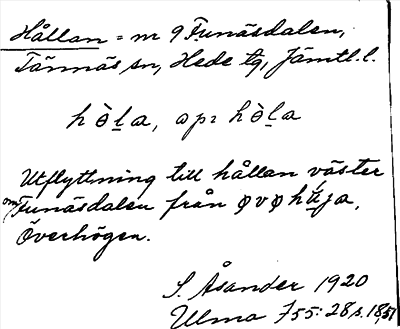 Hållan = m 9 Funäsdalen,
Tännäs sn, Hede tg, Jämtl. l.
h ò l a, ap: h ò l a
Utflyttning till hållan väster
om Funäsdalen från φvφhúja,
Överhögen.
S. Åsander 1920
Ulma 755:28 s. 18,51